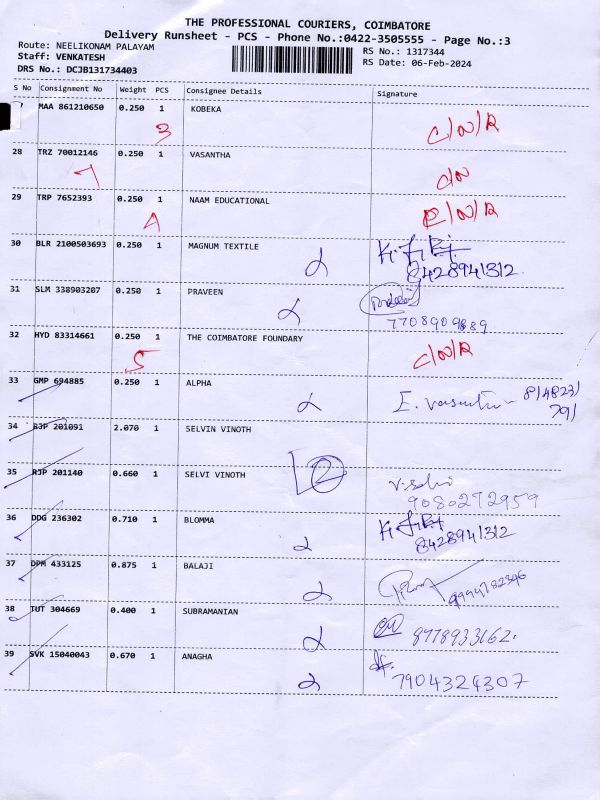 THE PROFESSIONAL COURIERS, COIMBATORE
Delivery Runsheet - PCS - Phone No.:0422-3505555 - Page No.:3
Route: NEELIKONAM PALAYAM
RS No.: 1317344
Staff: VENKATESH
RS Date: 06-Feb-2024
DRS No.: DCJB131734403
S No Consignment No Weight PCS Consignee Details Signature
MAA 861210650 0.250 1 KOBEKA
3 C/N/R
28 TRZ 70012146 0.250 1 VASANTHA
29 TRP 7652393 0.250 1 NAAM EDUCATIONAL
C/N/R
30 BLR 2100503693 0.250 1 MAGNUM TEXTILE
8428941312
31 SLM 338903207 0.250 1 PRAVEEN
32 HYD 83314661 0.250 1 THE COIMBATORE FOUNDARY
5 C/N/R
33 GMP 694885 0.250 1 ALPHA
34 RJP 201091 2.070 1 SELVIN VINOTH
35 RJP 201140 0.660 1 SELVI VINOTH
2
9080272959
36 DDG 236302 0.710 1 BLOMMA
8428941312
37 DPM 433125 0.875 1 BALAJI
38 TUT 304669 0.400 1 SUBRAMANIAN
8778933162.
39 SVK 15040043 0.670 1 ANAGHA
7904324307